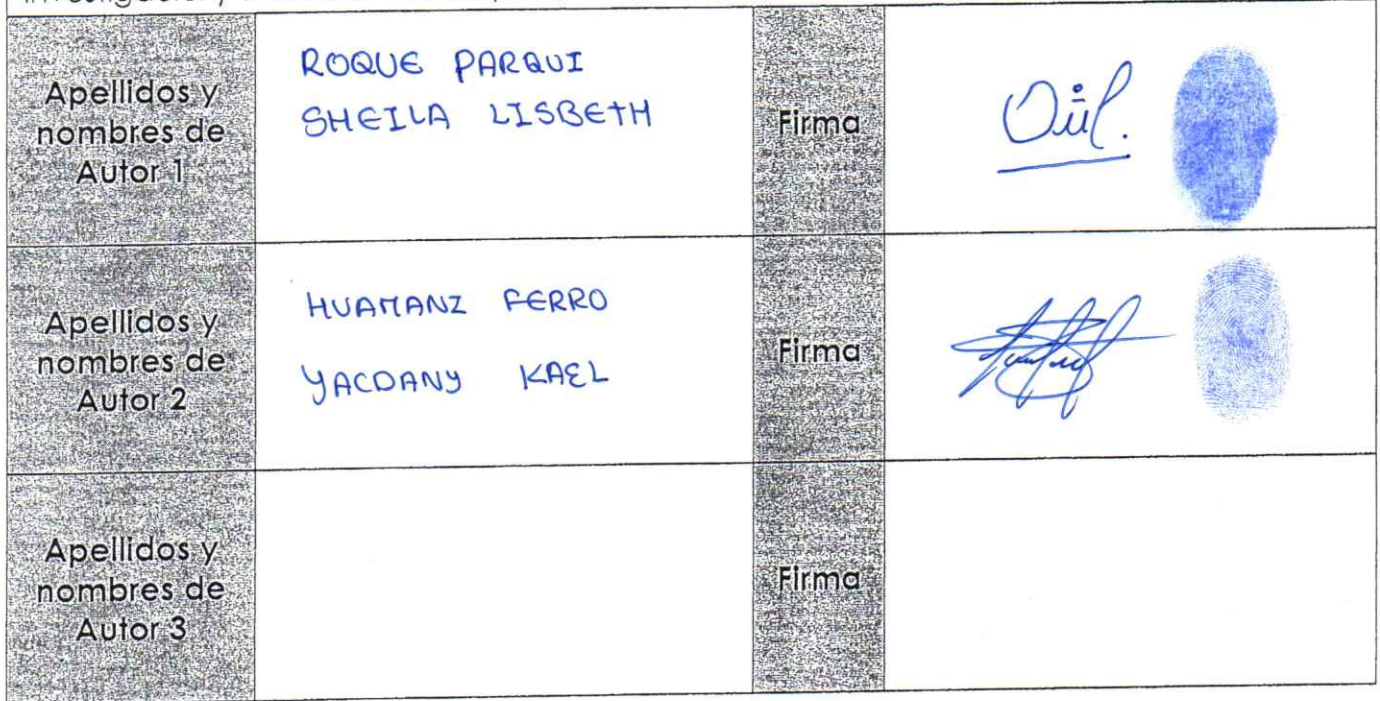 Apellidos y
nombres de
Autor 1
ROQUE PARQUI
SHEILA LISBETH
Firma
Apellidos y
nombres de
Autor 2
HUAMANI FERRO
YACDANY KAEL
Firma
Apellidos y
nombres de
Autor 3
Firma